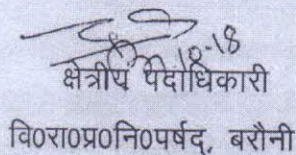 10-18
क्षेत्रीय पदाधिकारी
वि0रा0प्र0नि0पर्षद, बरौनी